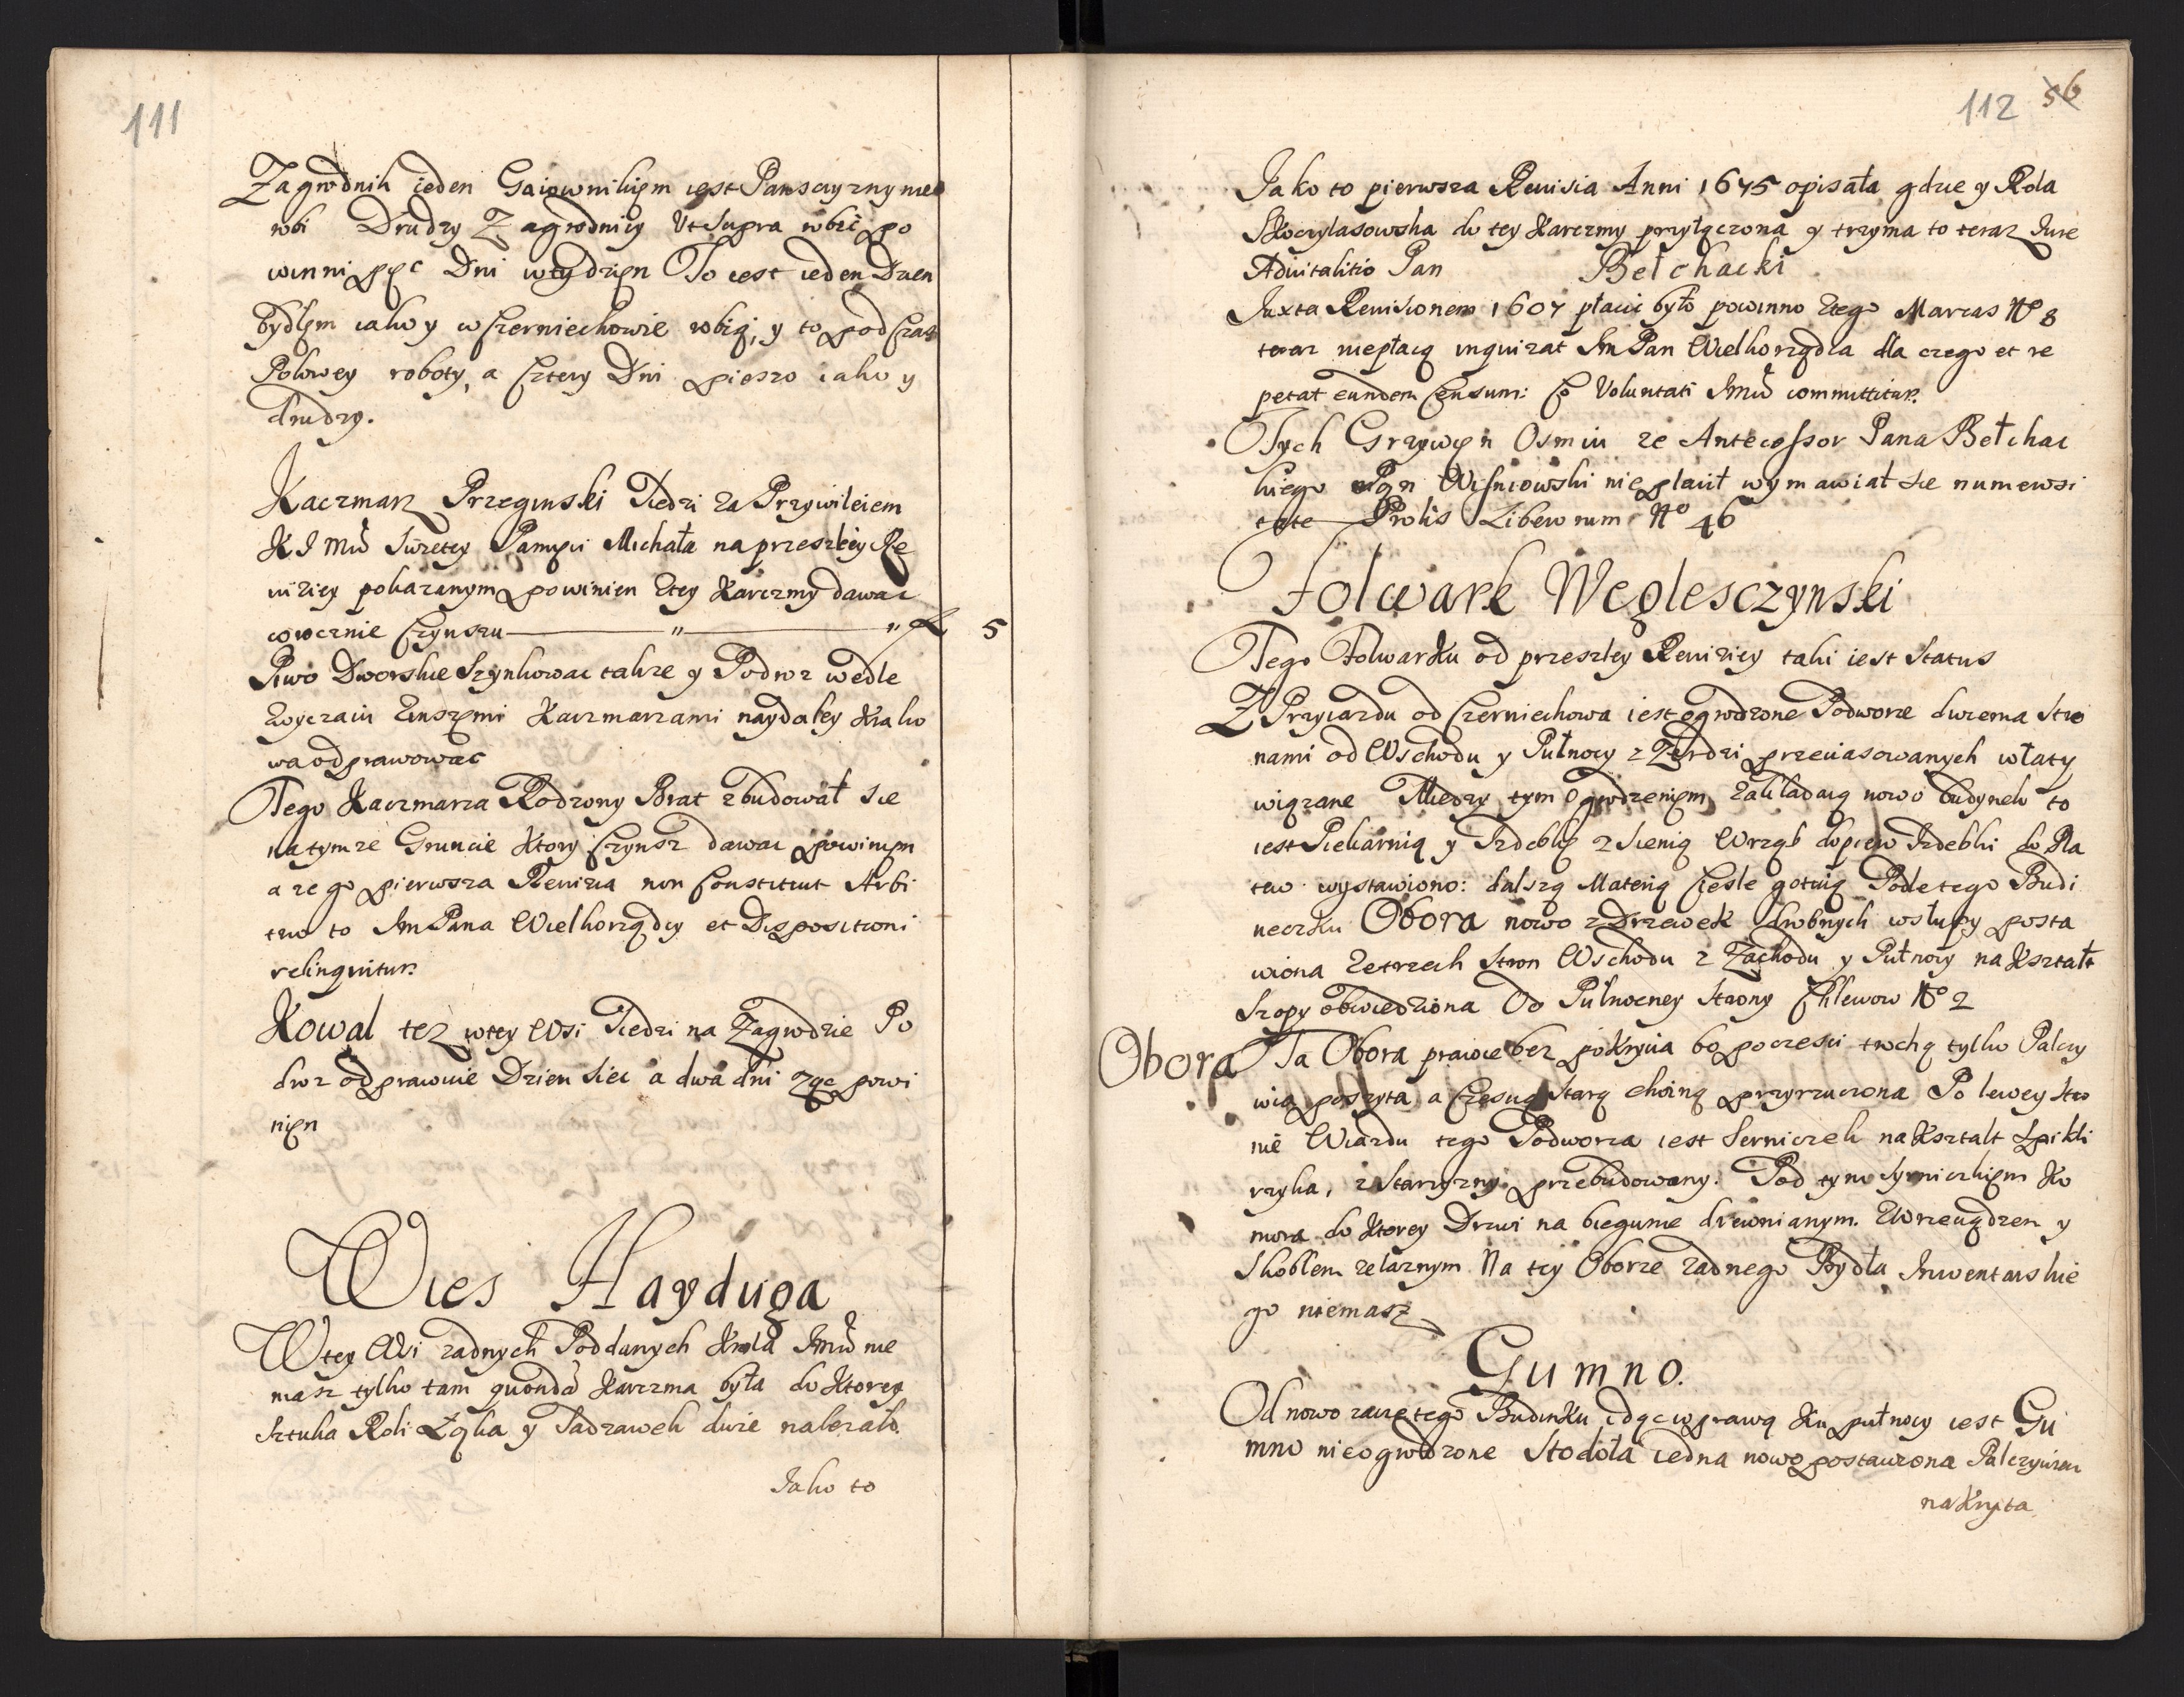 111
Zagrodnik ieden Gaiownikięm iest Panscyzny nie
robi Drudzy Zagrodnicy Ut Supra robic po
winni pęc Dni w tydzięn To iest ieden Dzien
bydłęm iako y w Czerniechowie robią, y to pod czas
Polowey roboty, a cztery Dni pieszo iako y
drudzy.
Kaczmarz Przeginski Siedzi za Przywileiem
K J Mci Swietey Pamięci Michała na przeszłey Re
wiziey pokazanym powinien ztey Karczmy dawac
corocznie Czynszu — " — " — 5
Piwo Dworskie Szynkowac takze y Podroz wedle
Zwyczaiu Zinszęmi Kaczmarzami naydaley Krako
wa odprawowac
Tego Kaczmarza Rodzony Brat zbudował sie
na tymze Gruncie Ktory Czynsz dawac powinięn
a ze go pierwsza Rewizia non Constituit Arbi
trio to Jm Pana Wielkorządcy et Dispositioni
relinquitur.
Kowal tez w tey Wsi Siedzi na Zagrodzie Po
droz odprawuie Dzien siec a dwa dni ząc powi
nięn
Wies Hayduga
W tey Wsi zadnych Poddanych Krola Jmci nie
masz tylko tam quondã Karczma była do Ktorey
Sztuka Roli Łąka y Sadzawek dwie nalezało.
Jako to
112 56
Jako to pierwsza Rewisia Anni 1675 opisała gdzie y Rola
Skoczylasowska do tey Karczmy przyłączona y trzyma to teraz Jure
Advitalitio Pan Bełchacki
Juxta Revisionem 1607 płacic było powinno ztego Marcas No 8
teraz niepłacą inquirat Jm Pan Wielkorządca dla czego et re
petat eundem Censum: Co Voluntati Jmci committitur.
Tych Grzywięn Osmiu ze Antecessor Pana Bełchac
kiego Pan Wisniowski nie płacił wymawiał sie numerosi
tate Prolis Liberorum No 46
Folwark Węglesczynski
Tego Folwarku od przeszłey Rewiziey taki iest Status
Z Przyiazdu od Czerniechowa iest ogrodzone Podworze dwiema stro
nami od Wschodu y Pułnocy z Zerdzi przeciasowanych w łaty
wiązane Miedzy tym Ogrodzenięm zakładaią nowo budynek to
iest Piekarnią y Izdebkę z Sienią Wrząb dopiero Izdebki do Pła
tew wystawiono: dalszą Materią Ciesle gotuią Podle tego Budi
neczku Obora nowo z Drzewek drobnych w słupy posta
wiona Zetrzech Stron Wschodu z Zachodu y Pułnocy na Kształt
Szopy obwiedziona Od Pułnocney Strony Chlewow No 2
Obora Ta Obora prawie bez pokrycia bo poczesci trochę tylko Palczy
wią poszyta a Czescią Starą choiną przyrzucona Po lewey Stro
nie Wiazdu tego Podworza iest Serniczek na Kształt Spikli
rzyka, z Starzyzny przebudowany. Pod tym Syrniczkięm Ko
mora do Ktorey Drzwi na biegunie drewnianym. Wrzeciądzem y
Skoblem zelaznym Na tey Oborze zadnego Bydła Inwentarskie
go niemasz
Gumno.
Od nowo zaczętego Budinku idąc w prawą Ku pułnocy iest Gu
mno nieogrodzone Stodoła iedna nowo postawiona Palczywiem
nakryta